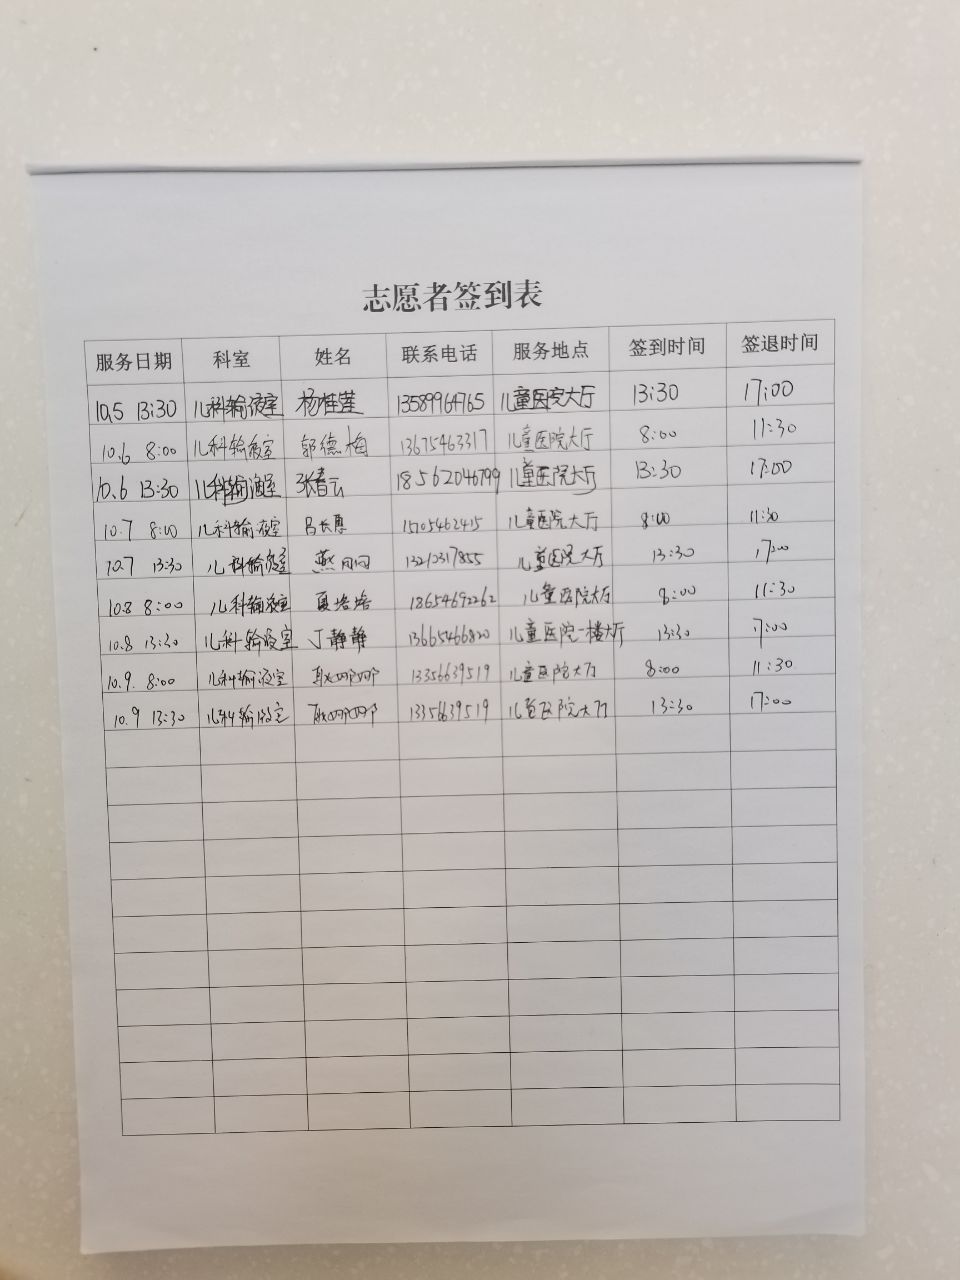 志愿者签到表
服务日期 科室 姓名 联系电话 服务地点 签到时间 签退时间
10.5 13:30 儿科输液室 杨桂莲 13589964765 儿童医院大厅 13:30 17:00
10.6 8:00 儿科输液室 郭德梅 13675463317 儿童医院大厅 8:00 11:30
10.6 13:30 儿科输液室 张春云 18562046799 儿童医院大厅 13:30 17:00
10.7 8:00 儿科输液室 吕长惠 15105462415 儿童医院大厅 8:00 11:30
10.7 13:30 儿科输液室 燕 儿童医院大厅 13:30 17:00
10.8 8:00 儿科输液室 夏培培 18654692262 儿童医院大厅 8:00 11:30
10.8 13:30 儿科输液室 丁静静 13665466820 儿童医院一楼大厅 13:30 17:00
10.9. 8:00 儿科输液室 13356639519 儿童医院大厅 8:00 11:30
10.9 13:30 儿科输液室 13356639519 儿童医院大厅 13:30 17:00